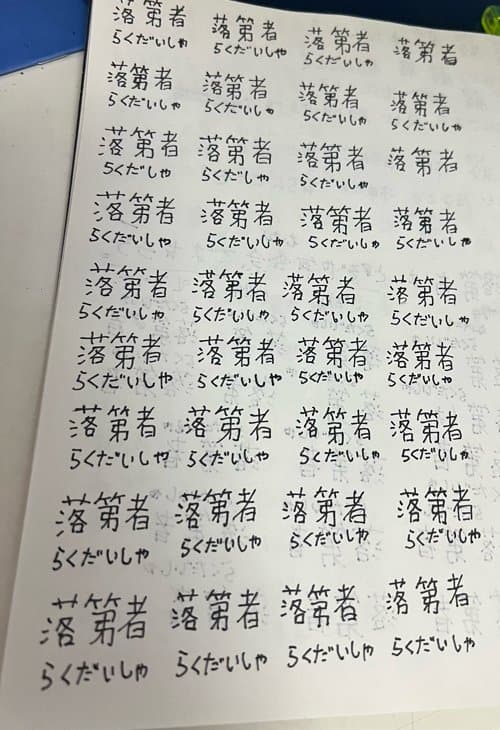 落第者 落第者 落第者 落第者
らくだいしゃ らくだいしゃ らくだいしゃ
落第者 落第者 落第者 落第者
らくだいしゃ らくだいしゃ らくだいしゃ らくだいしゃ
落第者 落第者 落第者 落第者
らくだいしゃ らくだいしゃ らくだいしゃ
落第者 落第者 落第者 落第者
らくだいしゃ らくだいしゃ らくだいしゃ らくだいしゃ
落第者 落第者 落第者 落第者
らくだいしゃ らくだいしゃ らくだいしゃ らくだいしゃ
落第者 落第者 落第者 落第者
らくだいしゃ らくだいしゃ らくだいしゃ らくだいしゃ
落第者 落第者 落第者 落第者
らくだいしゃ らくだいしゃ らくだいしゃ らくだいしゃ
落第者 落第者 落第者 落第者
らくだいしゃ らくだいしゃ らくだいしゃ らくだいしゃ
落第者 落第者 落第者 落第者
らくだいしゃ らくだいしゃ らくだいしゃ らくだいしゃ